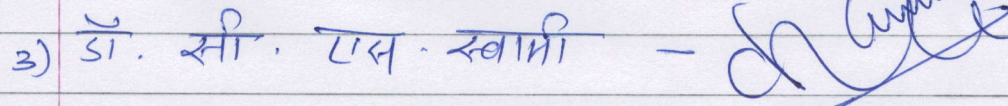 3) डॉ. सी. एस. स्वामी -